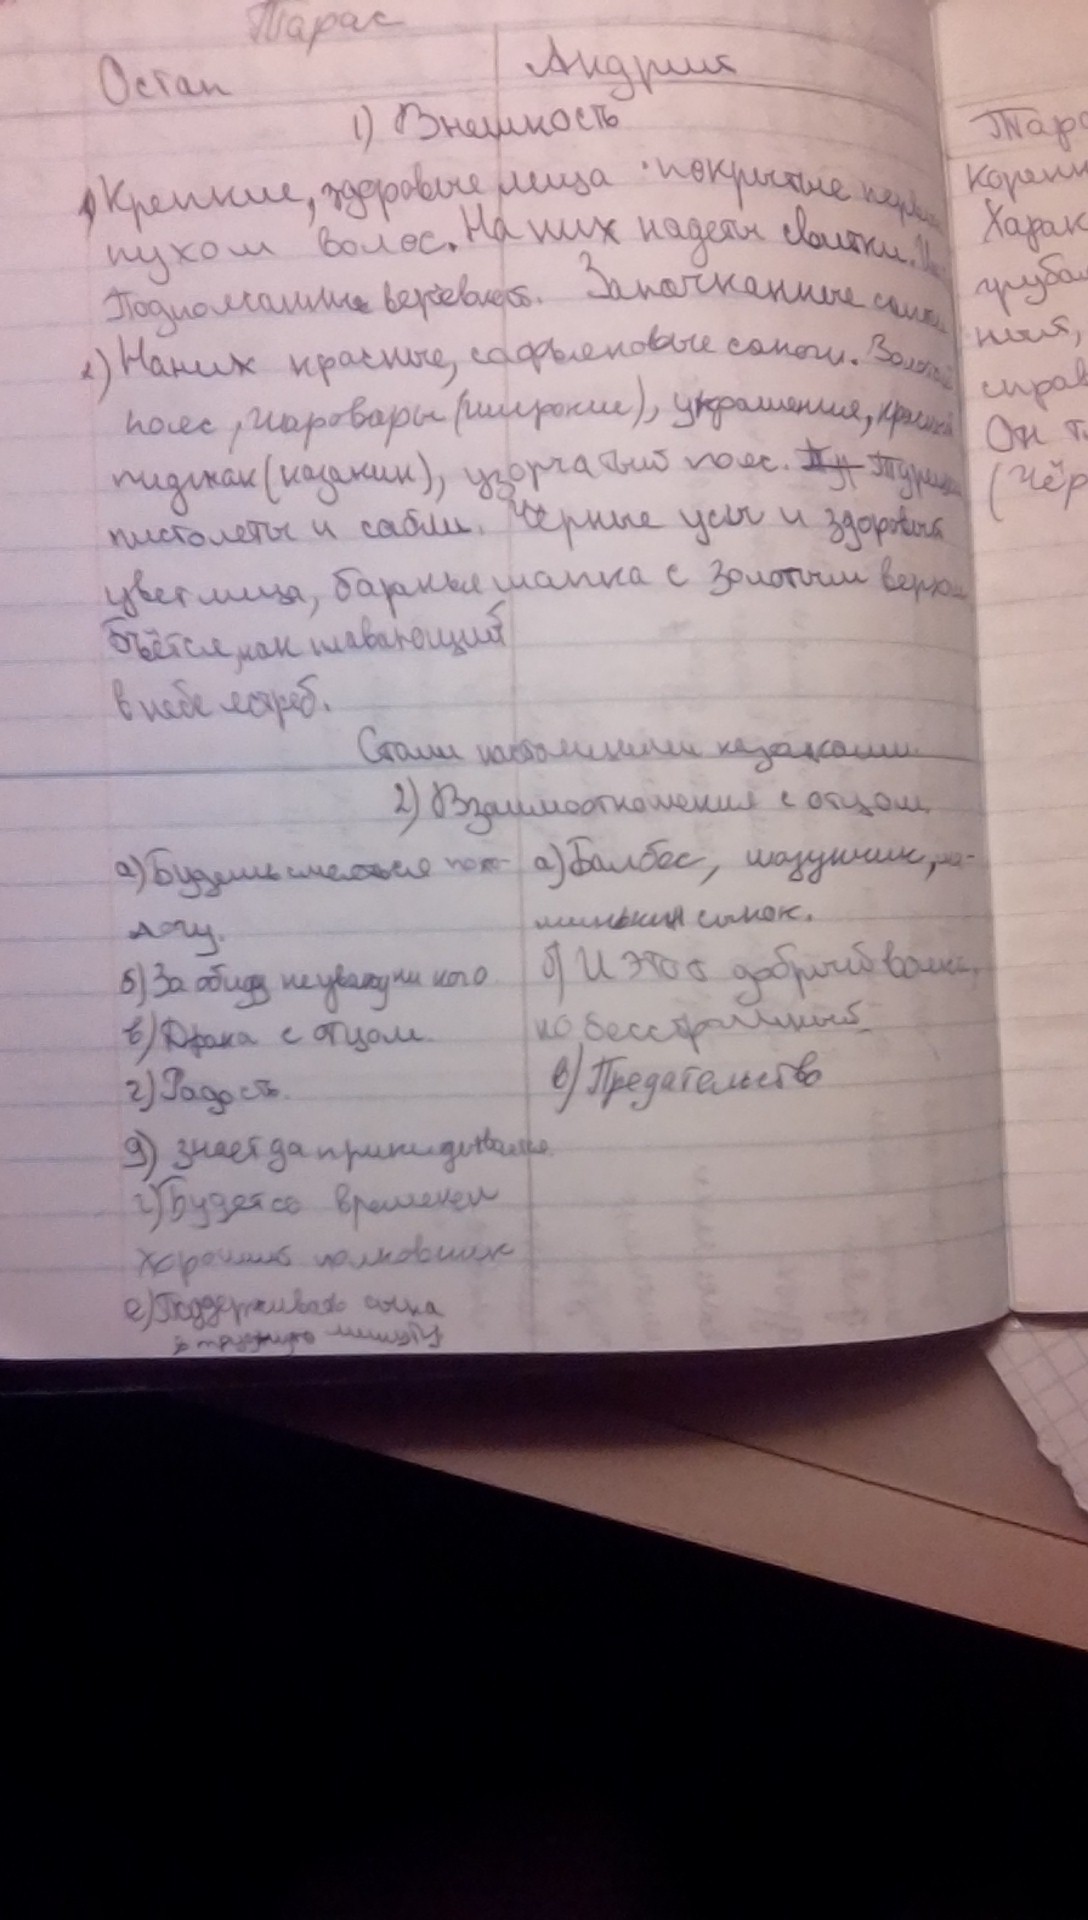 Тарас
Остап Андрий
1) Внешность
1) Крепкие, здоровые лица покрытые
пухом волос. На них надеты свитки.
Подпоясанные верёвкой. Запачканные
2) На них красные, сафьяновые сапоги. Золотой
пояс, шаровары (широкие), украшения, красный
пиджак (казакин), узорчатый пояс.
пистолеты и сабли. Чёрные усы и здоровый
цвет лица, баранья шапка с золотым верхом
Бьётся, как плавающий
в небе ястреб.
Стали настоящими казаками
2) Взаимоотношения с отцом
а) Будешь смеяться поко- а) Балбес, мазунчик, ма-
лочу. минькин сынок.
б) За обиду не уважу ни кого б) И этот добрый вояка,
в) Драка с отцом но бесстрашный
г) Радость. в) Предательство
д) знает да прикидывался
г) Будет со временем
хороший полковник
е) Поддерживать сына
в трудную минуту
Тара
Корен
Харак
грубы
справ
Он т
(Чёр